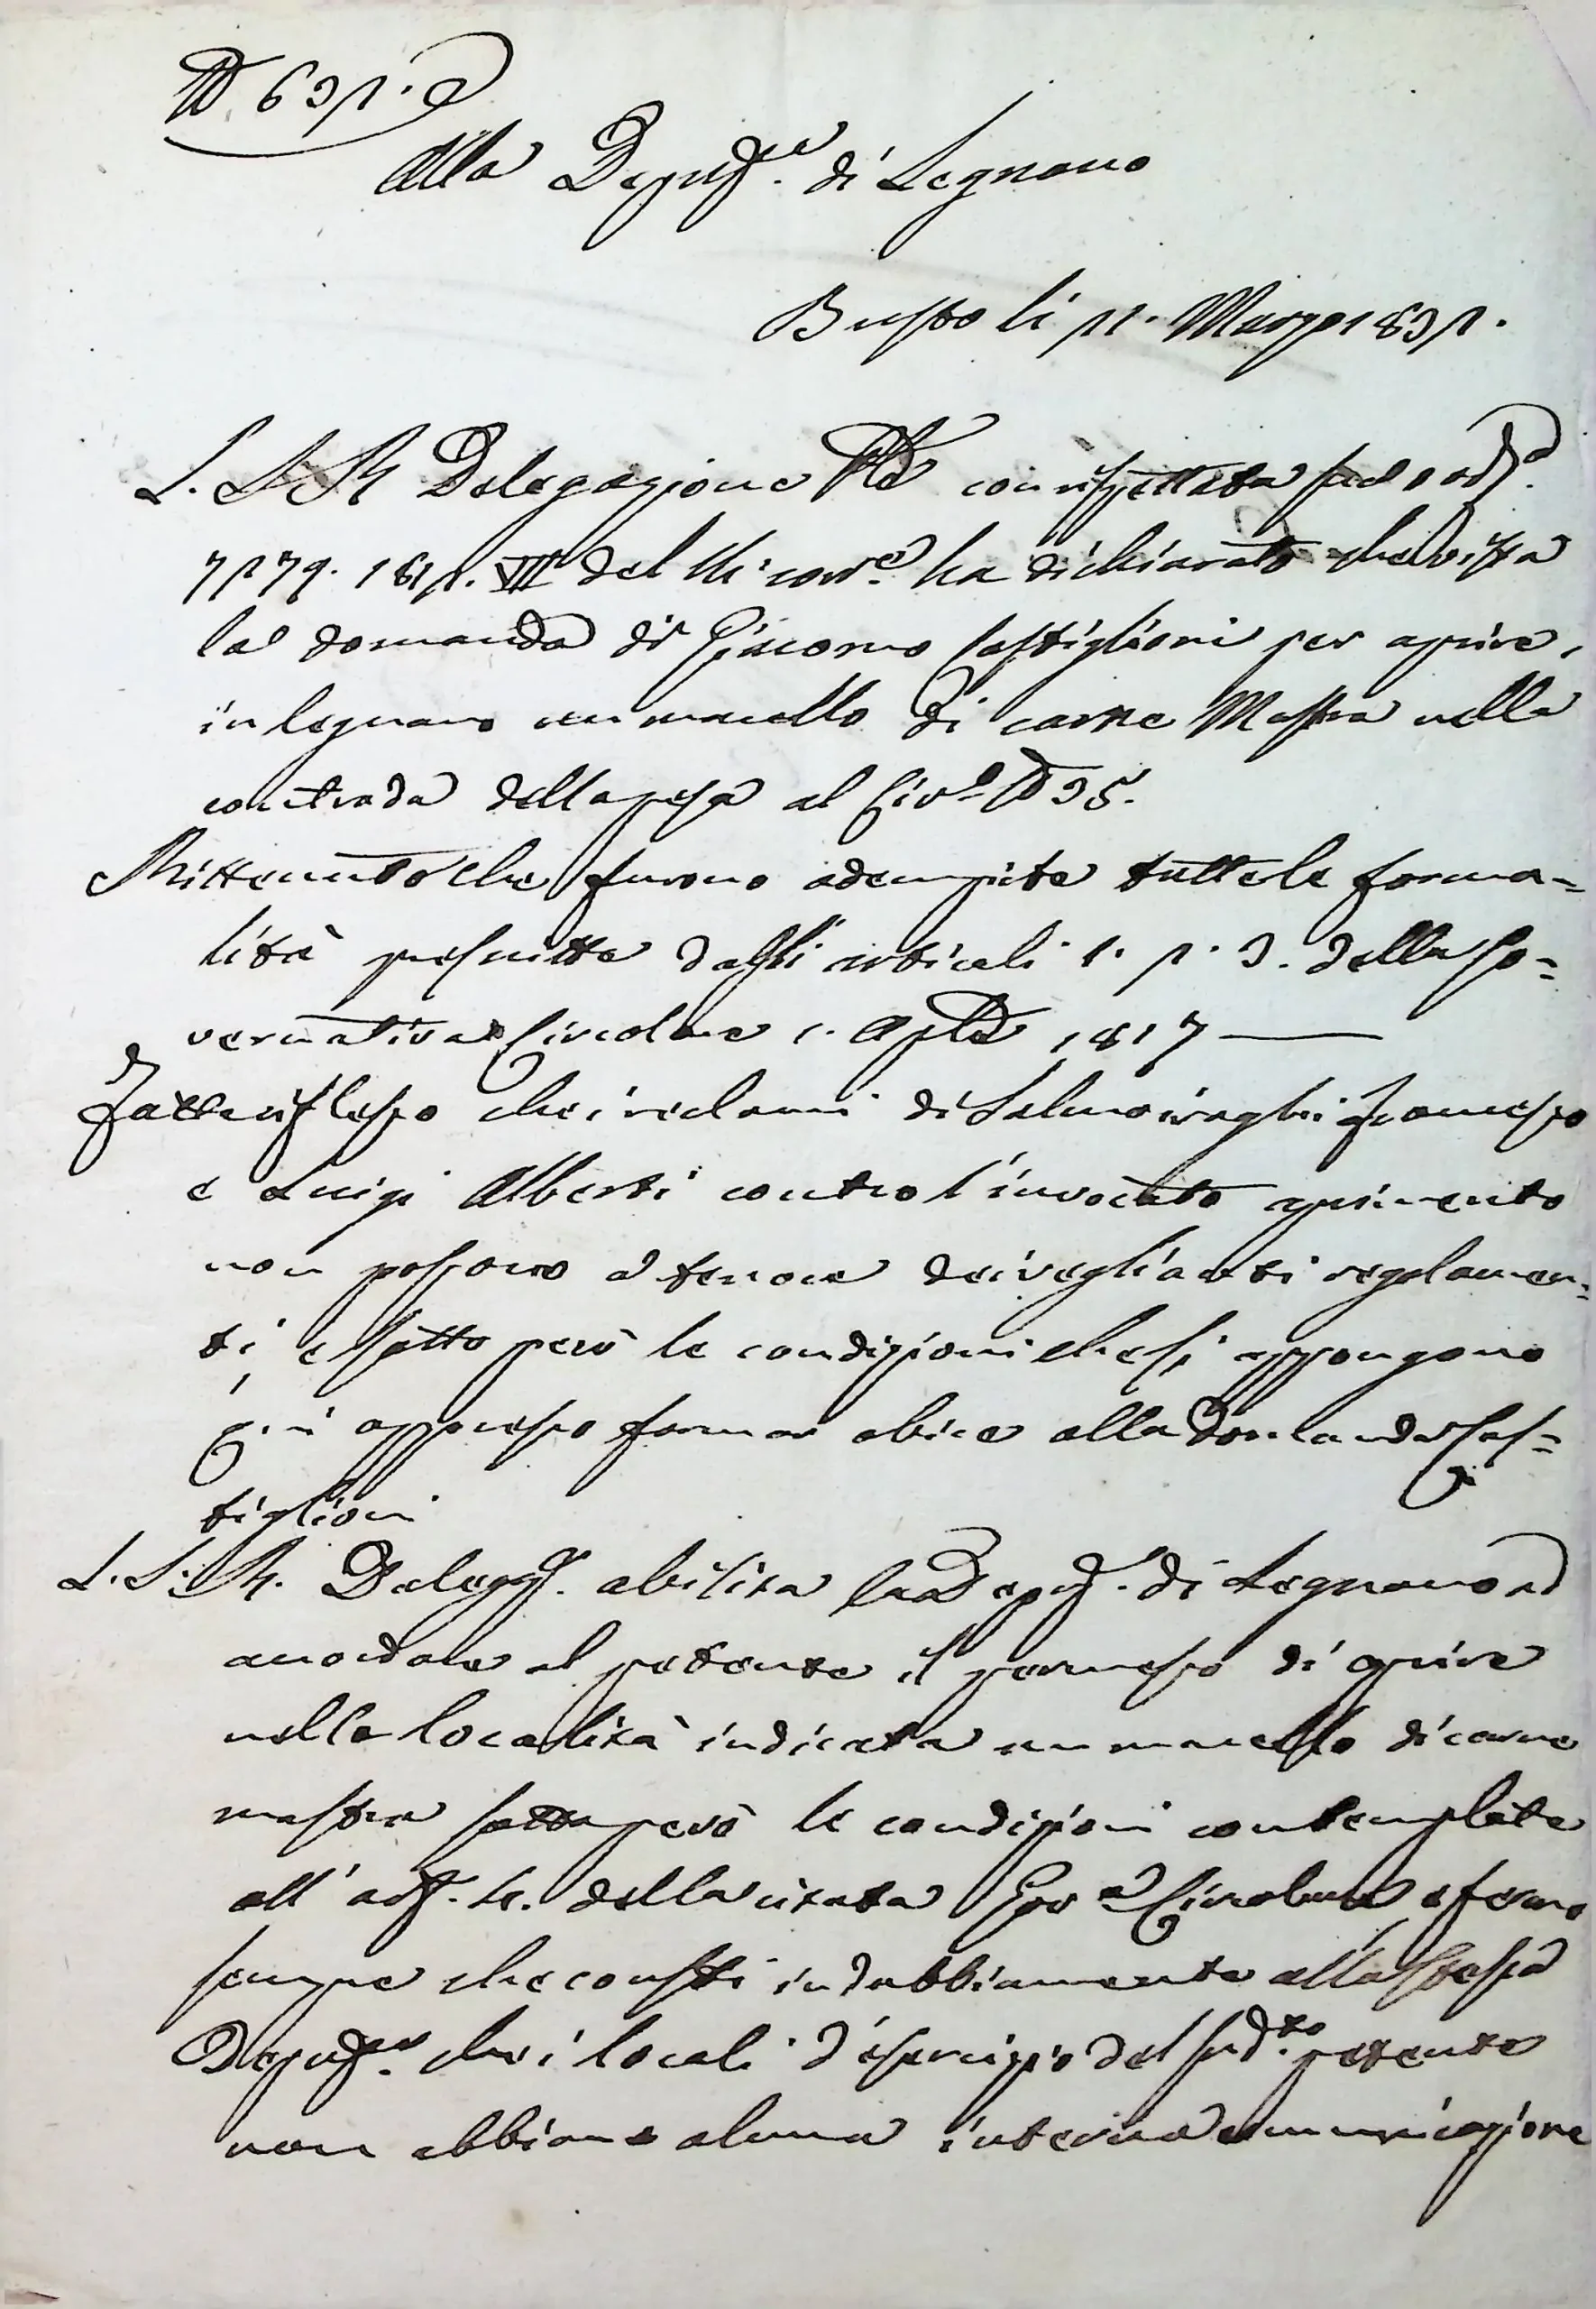 Alla Deput.e di Legnano
Busto li 12. Marzo 1832.
L. I. R. Delegazione Ple con rispettata sua ord.a
del corr.e ha dichiarato che vista
la domanda di Giacomo Castiglioni per aprire,
in Legnano un macello di carne Mastra nella
contrada della pesa al Civ.o N 35.
Rittenuto che furono adempite tutte le forma=
lità prescritte dagli articoli 1. 2. 3. della Go=
vernativa Circolare 1. Aple 1817
Fatto riflesso che i reclami di Salmoiraghi Francesco
e Luigi Alberti contro l'invocato aprimento
non possono a tenore dei veglianti regolamen=
ti, e sotto però le condizioni che si appongono
qui appresso formar obice alla domanda Cas=
tiglioni
L. I. R. Delegaz. abilita la Deput. di Legnano ad
accordare al petente il permesso di aprire
nella località indicata un macello di carne
mastra sotto però le condizioni contemplate
all' art. 4. della citata Gov.a Circolare, e fermo
sempre che consti indubbiamente alla stessa
Deput.e che i locali d'esercizio del sud.to petente
non abbiano alcuna interna comunicazione